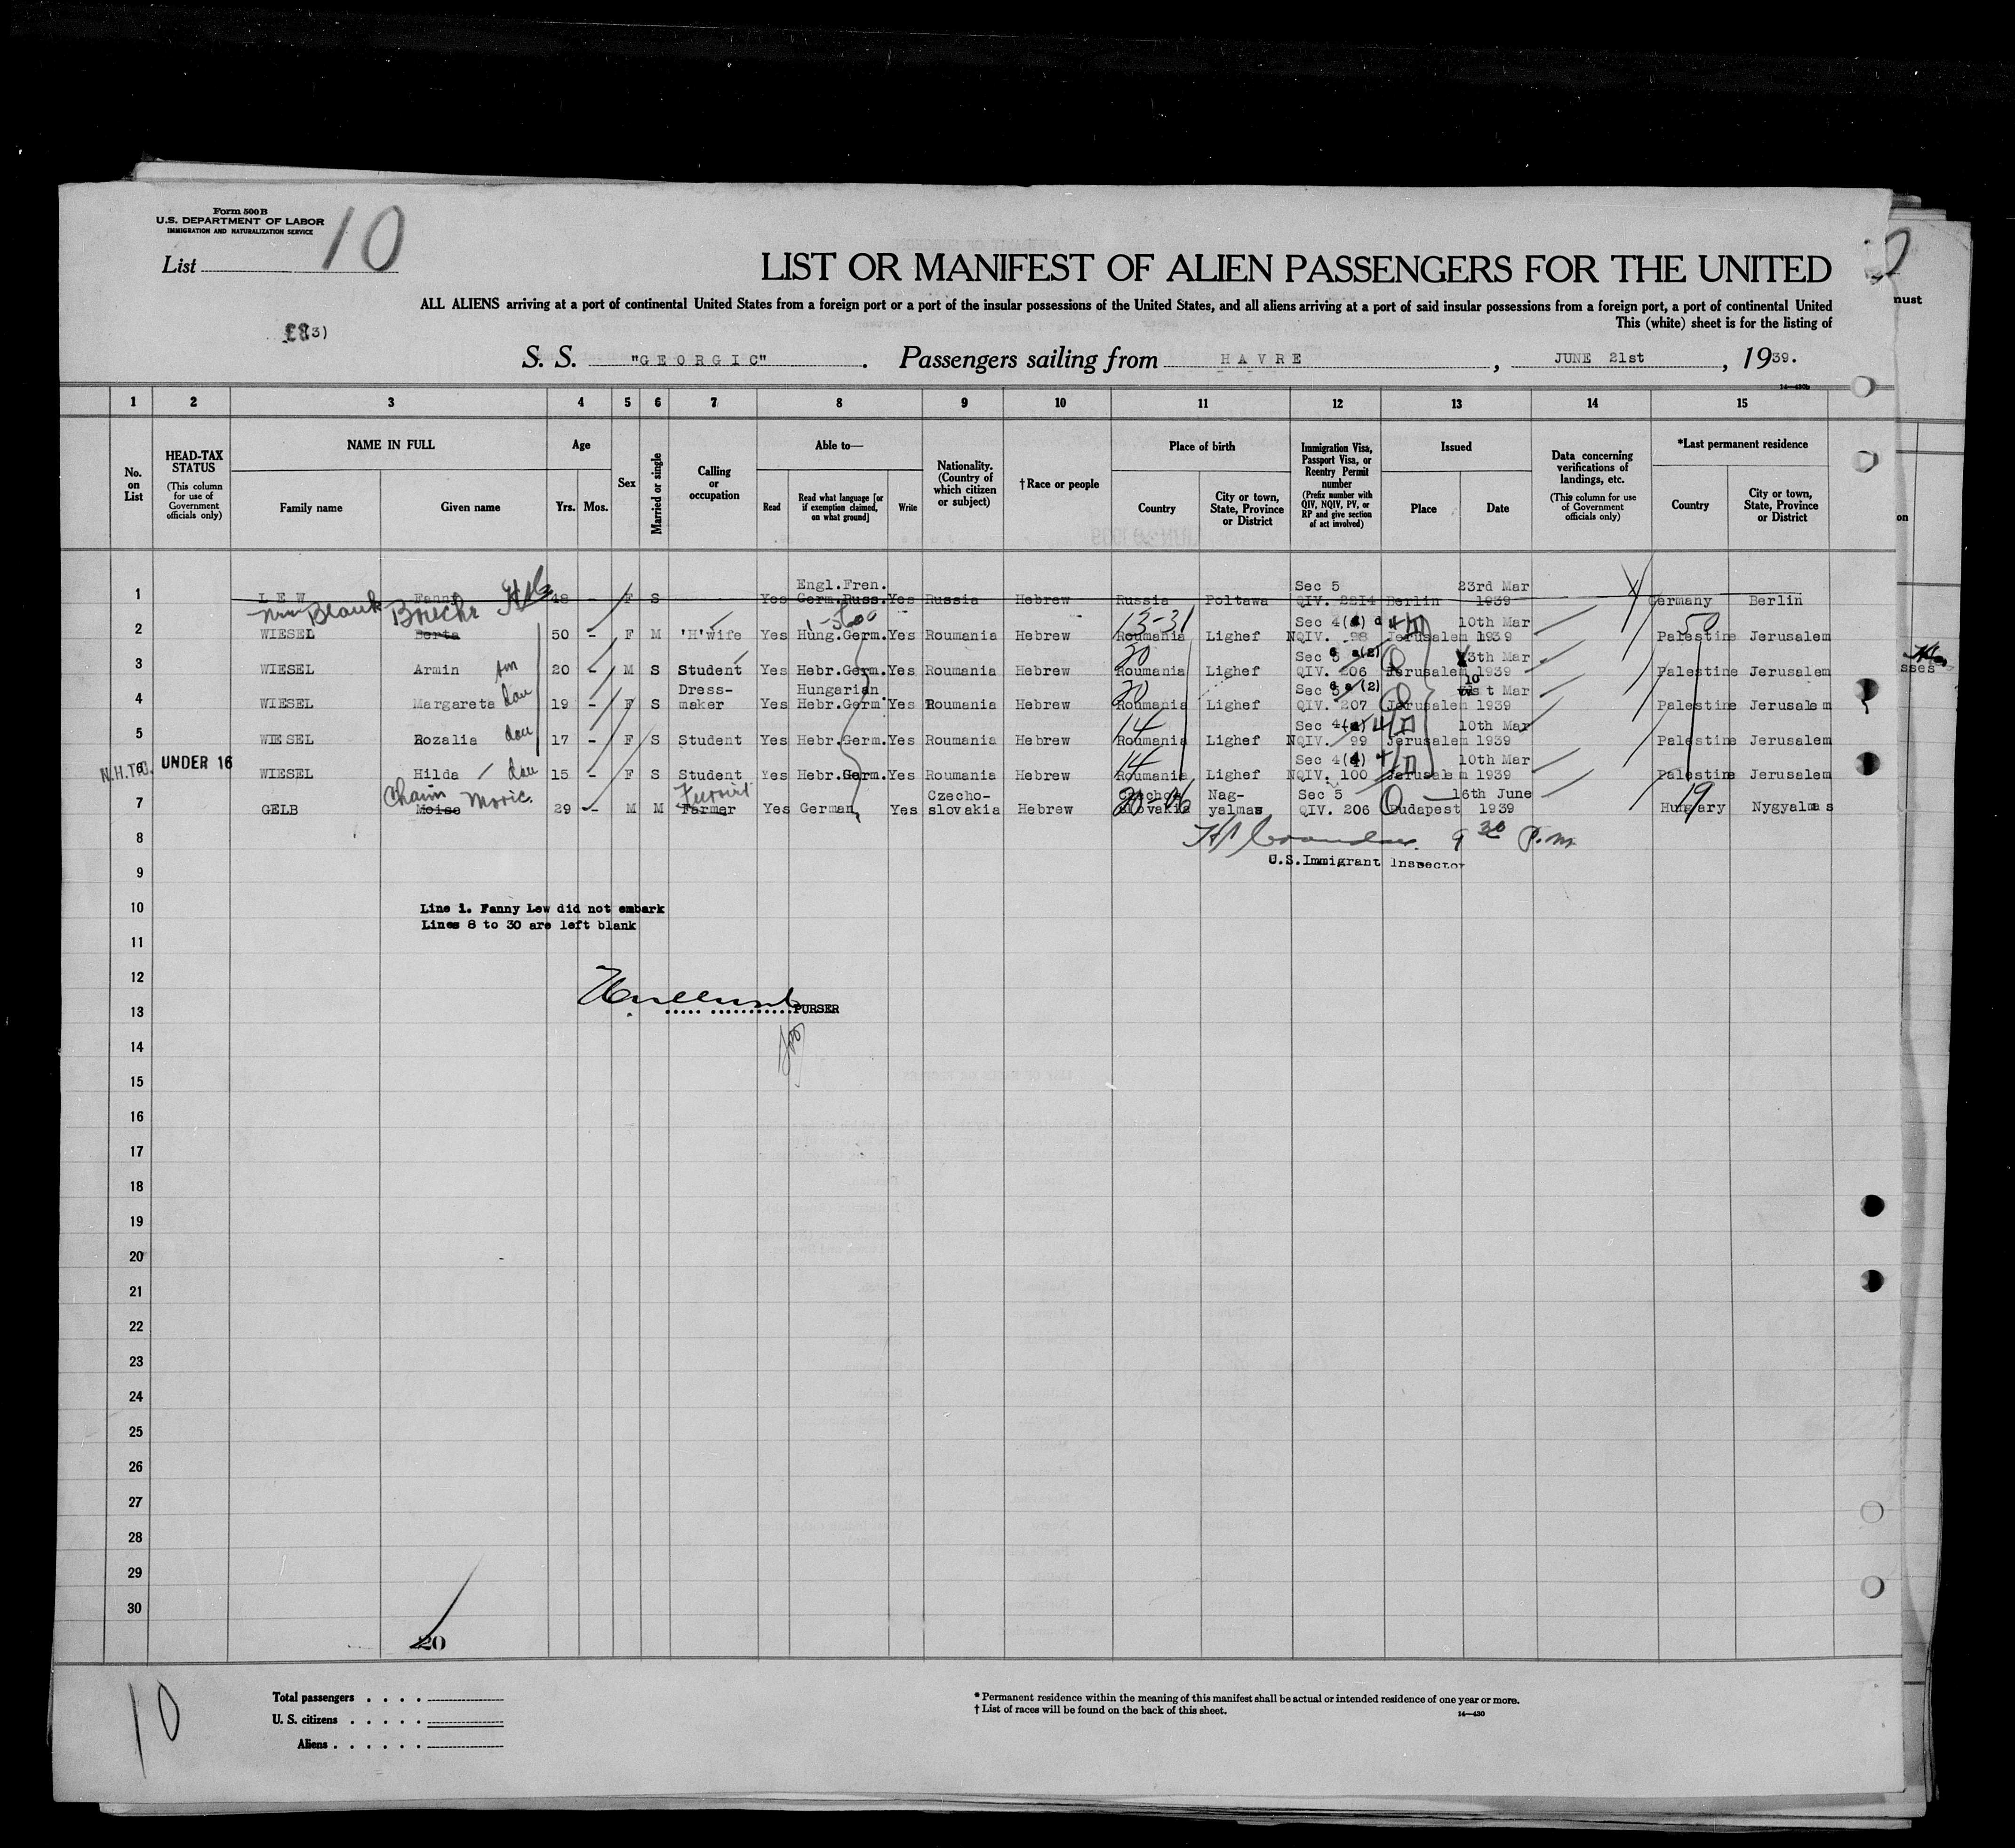 Form 500 B
U.S. DEPARTMENT OF LABOR
IMMIGRATION AND NATURALIZATION SERVICE
List 10
LIST OR MANIFEST OF ALIEN PASSENGERS FOR THE UNITED
ALL ALIENS arriving at a port of continental United States from a foreign port or a port of the insular possessions of the United States, and all aliens arriving at a port of said insular possessions from a foreign port, a port of continental United
This (white) sheet is for the listing of
S. S. "GEORGIC". Passengers sailing from HAVRE, JUNE 21st, 1939.
1 2 3 4 5 6 7 8 9 10 11 12 13 14 15
No. on List
HEAD-TAX STATUS
(This column for use of Government officials only)
NAME IN FULL
Family name Given name
Age
Yrs. Mos.
Sex
Married or single
Calling or occupation
Able to—
Read Read what language [or if exemption claimed, on what ground] Write
Nationality. (Country of which citizen or subject)
† Race or people
Place of birth
Country City or town, State, Province or District
Immigration Visa, Passport Visa, or Reentry Permit number
(Prefix number with QIV, NQIV, PV, or RP and give section of act involved)
Issued
Place Date
Data concerning verifications of landings, etc.
(This column for use of Government officials only)
*Last permanent residence
Country City or town, State, Province or District
1 LEW Fanny 48 - F S Yes Engl.Fren. Germ.Russ. Yes Russia Hebrew Russia Poltawa Sec 5 QIV. 2214 Berlin 23rd Mar 1939 Germany Berlin
Blank
2 WIESEL Berta 50 - F M 'H'wife Yes Hung.Germ. Yes Roumania Hebrew Roumania Lighef Sec 4 NQIV. 98 Jerusalem 10th Mar 1939 Palestine Jerusalem
3 WIESEL Armin son 20 - M S Student Yes Hebr.Germ. Yes Roumania Hebrew Roumania Lighef Sec QIV. 206 Jerusalem 13th Mar 1939 Palestine Jerusalem
4 WIESEL Margareta dau 19 - F S Dressmaker Yes Hungarian Hebr.Germ Yes Roumania Hebrew Roumania Lighef Sec QIV. 207 Jerusalem Mar 1939 Palestine Jerusalem
5 WIESEL Rozalia dau 17 - F S Student Yes Hebr.Germ. Yes Roumania Hebrew Roumania Lighef Sec 4 NQIV. 99 Jerusalem 10th Mar 1939 Palestine Jerusalem
N.H.T.C. 6 UNDER 16 WIESEL Hilda dau 15 - F S Student Yes Hebr.Germ. Yes Roumania Hebrew Roumania Lighef Sec 4 NQIV. 100 Jerusalem 10th Mar 1939 Palestine Jerusalem
Chaim Moric.
7 GELB Moise 29 - M M Farmer Yes German Yes Czecho-slovakia Hebrew Czecho-slovakia Nag-yalmas Sec 5 QIV. 206 Budapest 16th June 1939 Hungary Nygyalmas
8
9 30 P.m.
U.S.Immigrant Inspector
9
10
Line 1. Fanny Lew did not embark
Lines 8 to 30 are left blank
11
12
13
PURSER
14
15
16
17
18
19
20
21
22
23
24
25
26
27
28
29
30
20
10
Total passengers . . . .
U. S. citizens . . . . .
Aliens . . . . . .
* Permanent residence within the meaning of this manifest shall be actual or intended residence of one year or more.
† List of races will be found on the back of this sheet.
14—430